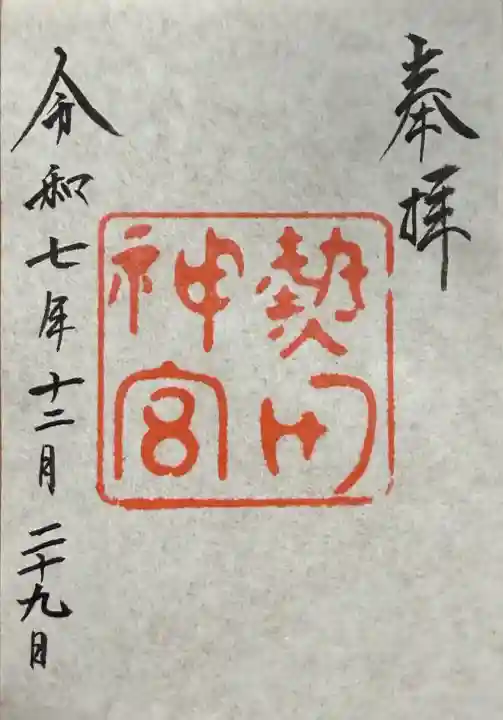 奉拝
熱田
神宮
令和七年十二月二十九日